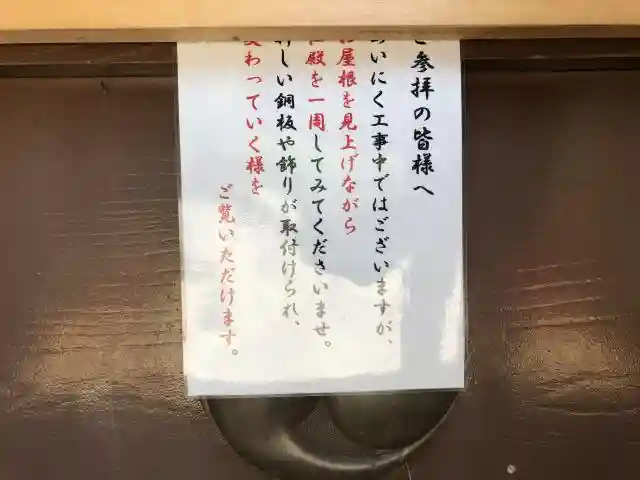 ご参拝の皆様へ
あいにく工事中ではございますが、
屋根を見上げながら
殿を一周してみてくださいませ。
新しい銅板や飾りが取付けられ、
変わっていく様を
ご覧いただけます。